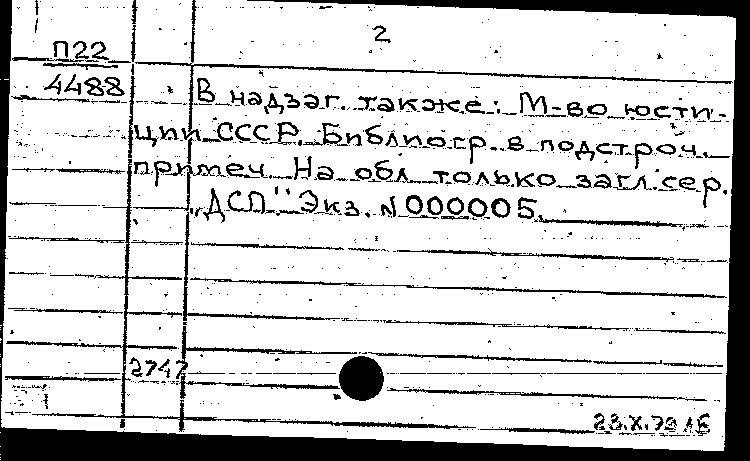 2
П22
4488
В надзаг. также: М-во юсти-
ции СССР. Библиогр. в подстроч.
примеч. На обл. только загл. сер.
„ДСП" Экз. N 000005.
2747
23.X.79